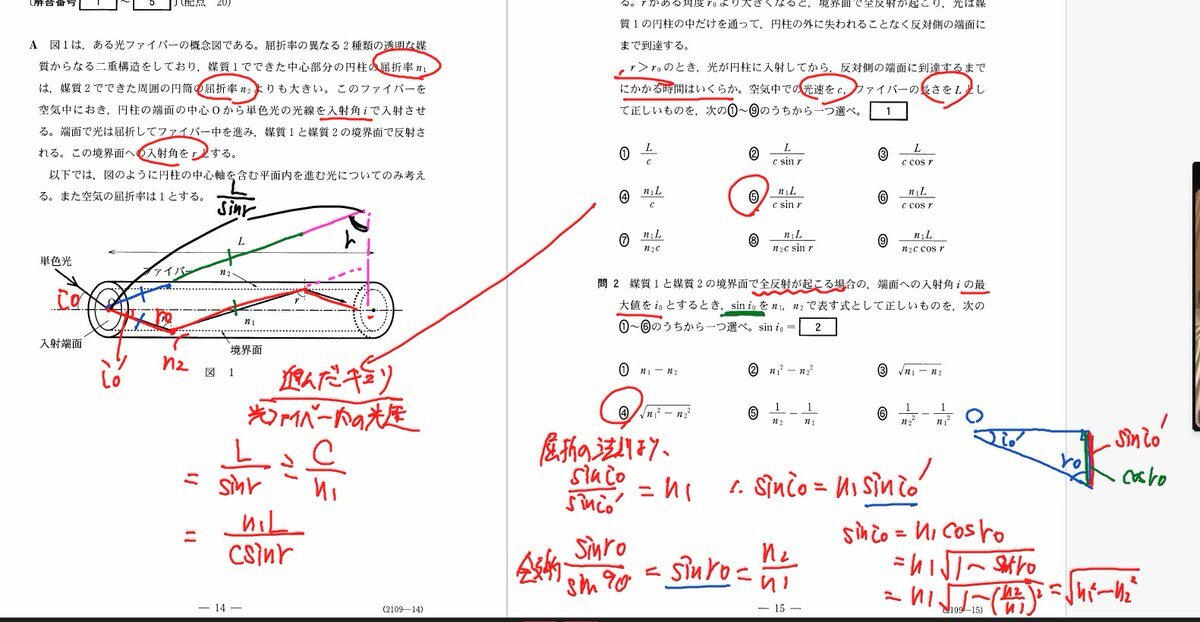 〔解答番号 1 ～ 5 〕(配点 20)
A 図1は，ある光ファイバーの概念図である。屈折率の異なる2種類の透明な媒
質からなる二重構造をしており，媒質1でできた中心部分の円柱の屈折率n₁
は，媒質2でできた周囲の円筒の屈折率n₂よりも大きい。このファイバーを
空気中におき，円柱の端面の中心Oから単色光の光線を入射角iで入射させ
る。端面で光は屈折してファイバー中を進み，媒質1と媒質2の境界面で反射さ
れる。この境界面への入射角をrとする。
以下では，図のように円柱の中心軸を含む平面内を進む光についてのみ考え
る。また空気の屈折率は1とする。
L/sinr
r
L
単色光
ファイバー
n₂
i₀
O
r₀
r
n₁
入射端面
i₀′
n₂
境界面
図 1
進んだキョリ/光ファイバー内の光速
= L/sinr ÷ C/n₁
= n₁L/csinr
― 14 ―
(2109―14)
る。rがある角度r₀より大きくなると，境界面で全反射が起こり，光は媒
質1の円柱の中だけを通って，円柱の外に失われることなく反対側の端面に
まで到達する。
r＞r₀のとき，光が円柱に入射してから，反対側の端面に到達するまで
にかかる時間はいくらか。空気中での光速をc，ファイバーの長さをLとし
て正しいものを，次の①～⑨のうちから一つ選べ。 1
① L/c ② L/c sin r ③ L/c cos r
④ n₁L/c ⑤ n₁L/c sin r ⑥ n₁L/c cos r
⑦ n₁L/n₂c ⑧ n₁L/n₂c sin r ⑨ n₁L/n₂c cos r
問 2 媒質1と媒質2の境界面で全反射が起こる場合の，端面への入射角iの最
大値をi₀とするとき，sin i₀をn₁，n₂で表す式として正しいものを，次の
①～⑥のうちから一つ選べ。sin i₀＝ 2
① n₁－n₂ ② n₁²－n₂² ③ √(n₁－n₂)
④ √(n₁²－n₂²) ⑤ 1/n₂－1/n₁ ⑥ 1/n₂²－1/n₁²
屈折の法則より、
sini₀/sini₀′ = n₁ ∴ sini₀ = n₁ sini₀′
O
i₀′
r₀
sini₀′
cosr₀
全反射 sinr₀/sin90° = sinr₀ = n₂/n₁
sini₀ = n₁cosr₀
= n₁√(1－sin²r₀)
= n₁√(1－(n₂/n₁)²) = √(n₁²－n₂²)
― 15 ―
(2109―15)